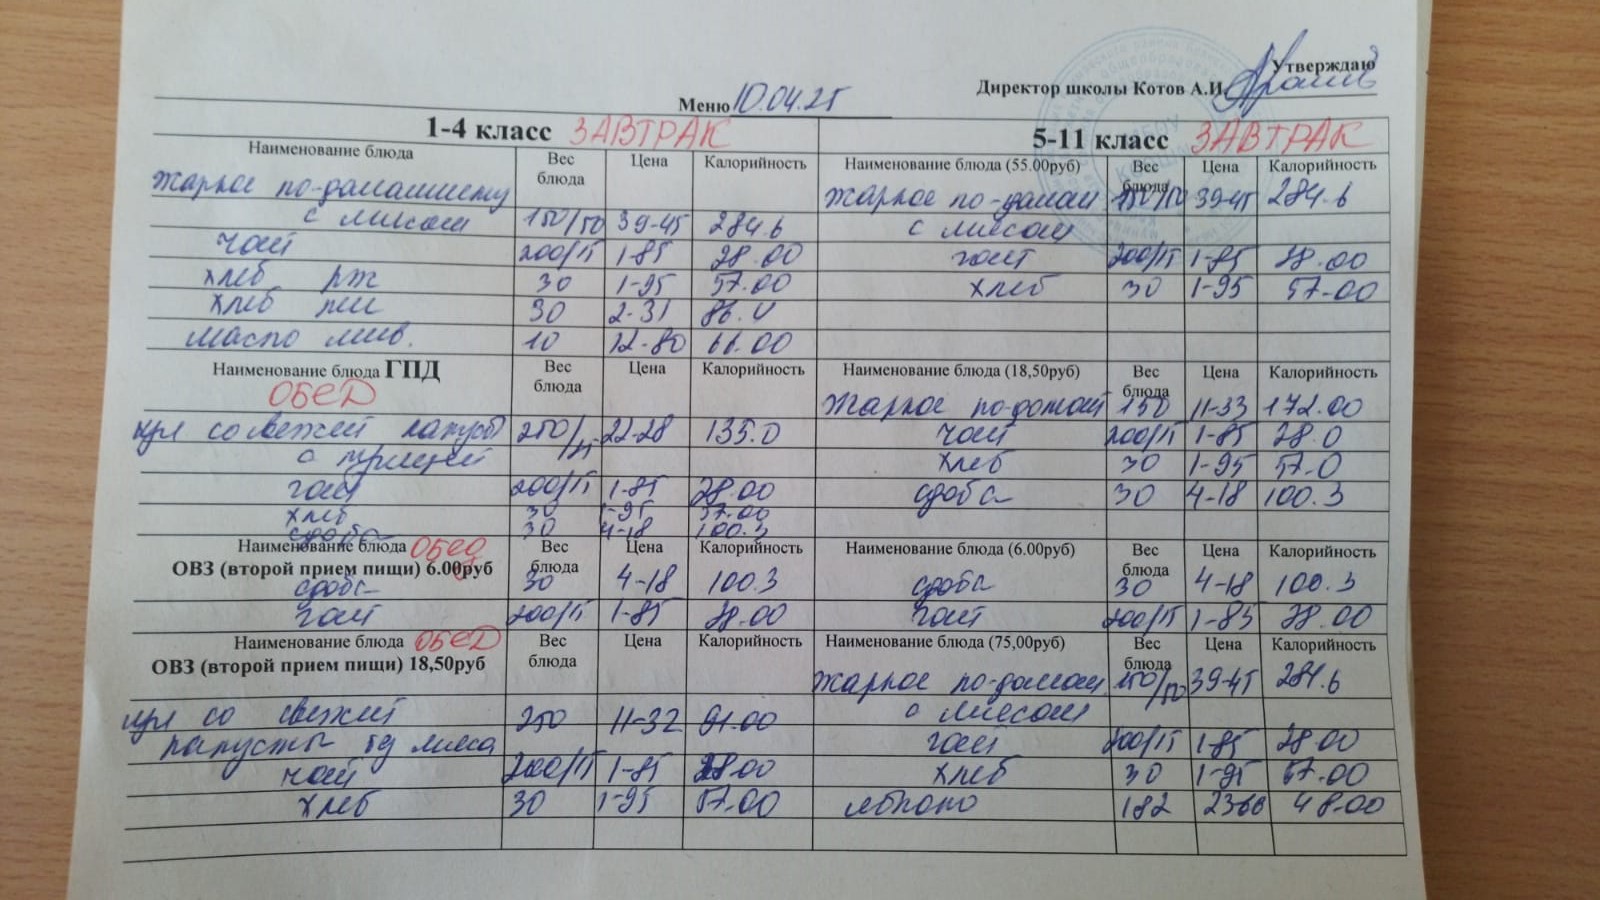 Утверждаю
Директор школы Котов А.И.
Меню 10.04.25
1-4 класс ЗАВТРАК
Наименование блюда Вес блюда Цена Калорийность
Жаркое по-домашнему
с мясом 150/50 39-45 284.6
чай 200/15 1-85 28.00
хлеб рж 30 1-95 57.00
хлеб пш 30 2-31 86.4
масло слив. 10 12-80 66.00
Наименование блюда ГПД Вес блюда Цена Калорийность
ОБЕД
со свежей капусты 250/ 22-28 135.0
с
чай 200/15 1-85 28.00
хлеб 30 1-95 57.00
сдоба 30 4-18 100.3
Наименование блюда ОБЕД Вес блюда Цена Калорийность
ОВЗ (второй прием пищи) 6.00руб
сдоба 30 4-18 100.3
чай 200/15 1-85 28.00
Наименование блюда ОБЕД Вес блюда Цена Калорийность
ОВЗ (второй прием пищи) 18,50руб
со свежей 250 11-32 91.00
капусты мяса
чай 200/15 1-85 28.00
хлеб 30 1-95 57.00
5-11 класс ЗАВТРАК
Наименование блюда (55.00руб) Вес блюда Цена Калорийность
Жаркое по-домаш 150/50 39-45 284.6
с мясом
чай 200/15 1-85 28.00
хлеб 30 1-95 57-00
Наименование блюда (18,50руб) Вес блюда Цена Калорийность
Жаркое по-домаш 150 11-33 172.00
чай 200/15 1-85 28.0
хлеб 30 1-95 57.0
сдоба 30 4-18 100.3
Наименование блюда (6.00руб) Вес блюда Цена Калорийность
сдоба 30 4-18 100.3
чай 200/15 1-85 28.00
Наименование блюда (75,00руб) Вес блюда Цена Калорийность
Жаркое по-домаш 150/50 39-45 284.6
с мясом
чай 200/15 1-85 28.00
хлеб 30 1-95 57.00
яблоко 182 2366 48.00